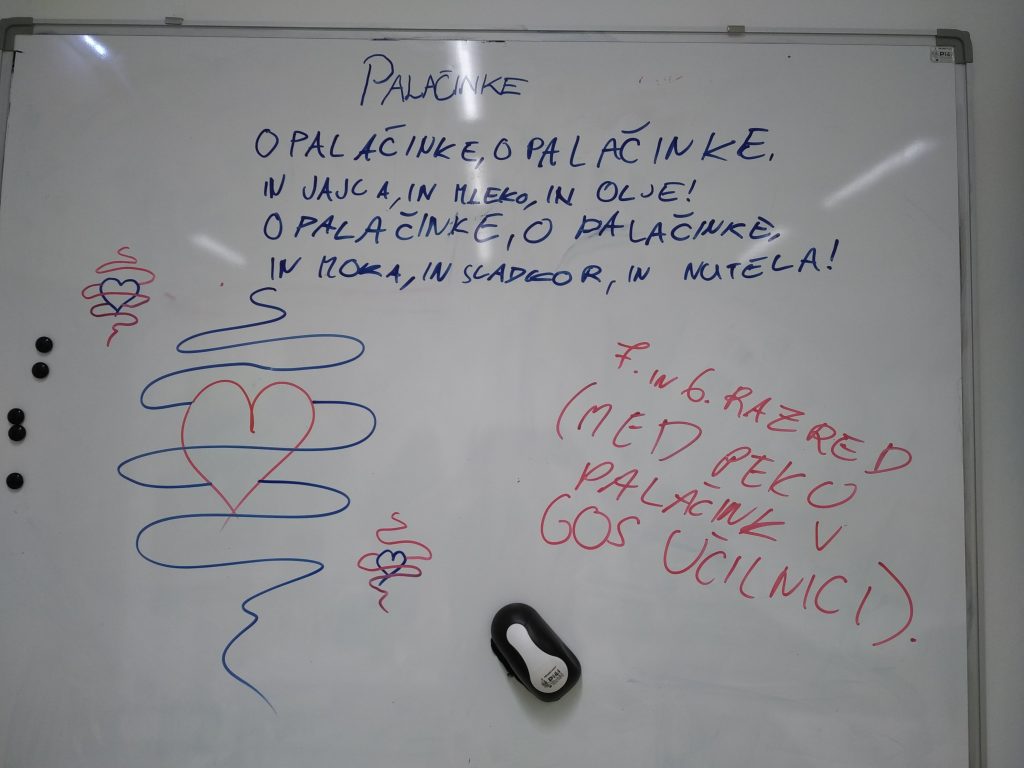 PALAČINKE
O PALAČINKE, O PALAČINKE,
IN JAJCA, IN MLEKO, IN OLJE!
O PALAČINKE, O PALAČINKE,
IN MOKA, IN SLADKOR, IN NUTELA!
7. IN 6. RAZRED
(MED PEKO
PALAČINK V
GOS UČILNICI).